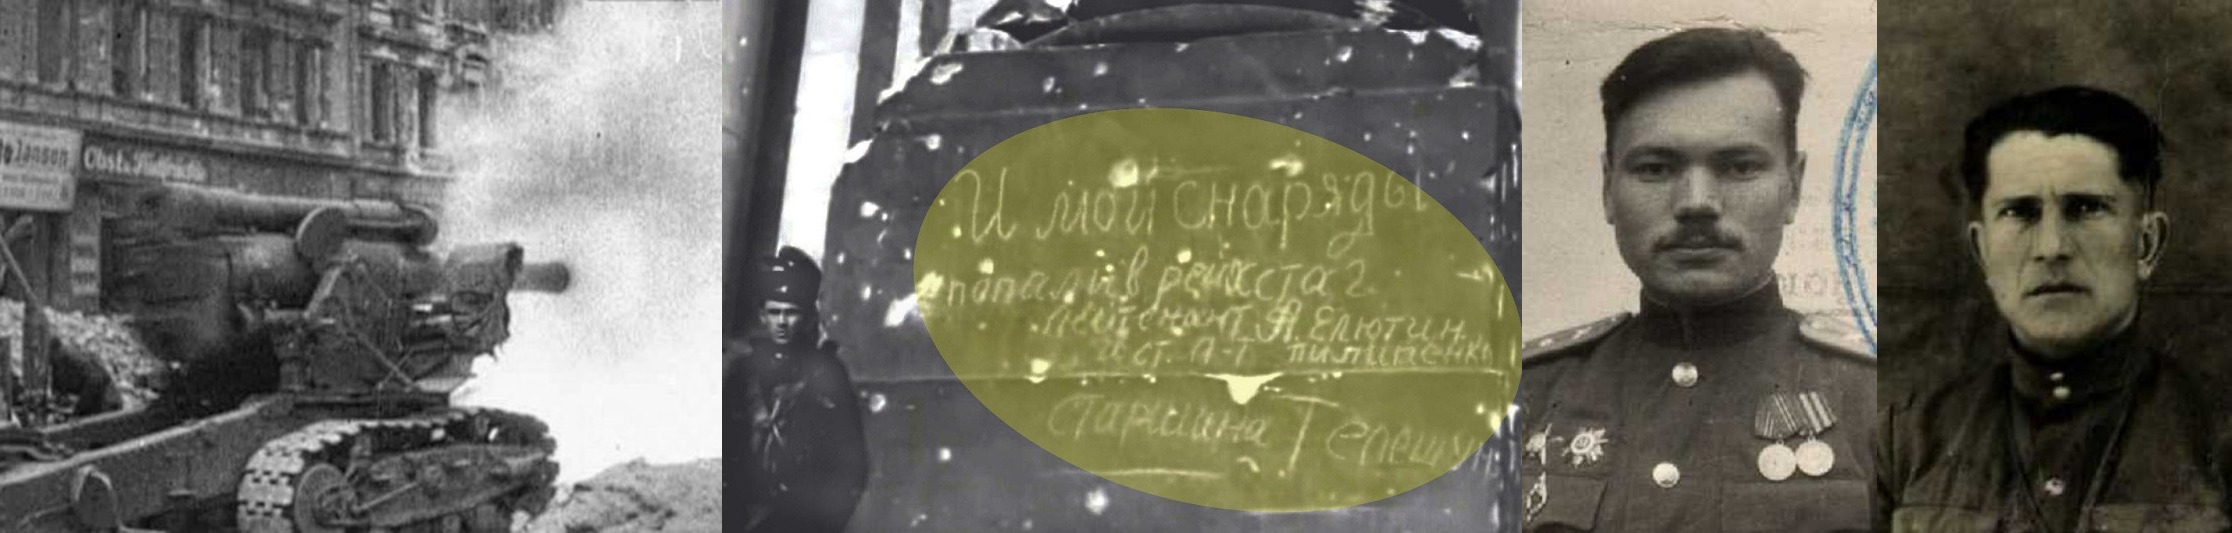 Janson
Obst.
И мои снаряды
попали в рейхстаг.
лейтенант А. Елютин.
и ст. л-т пилипенко
старшина Телешун